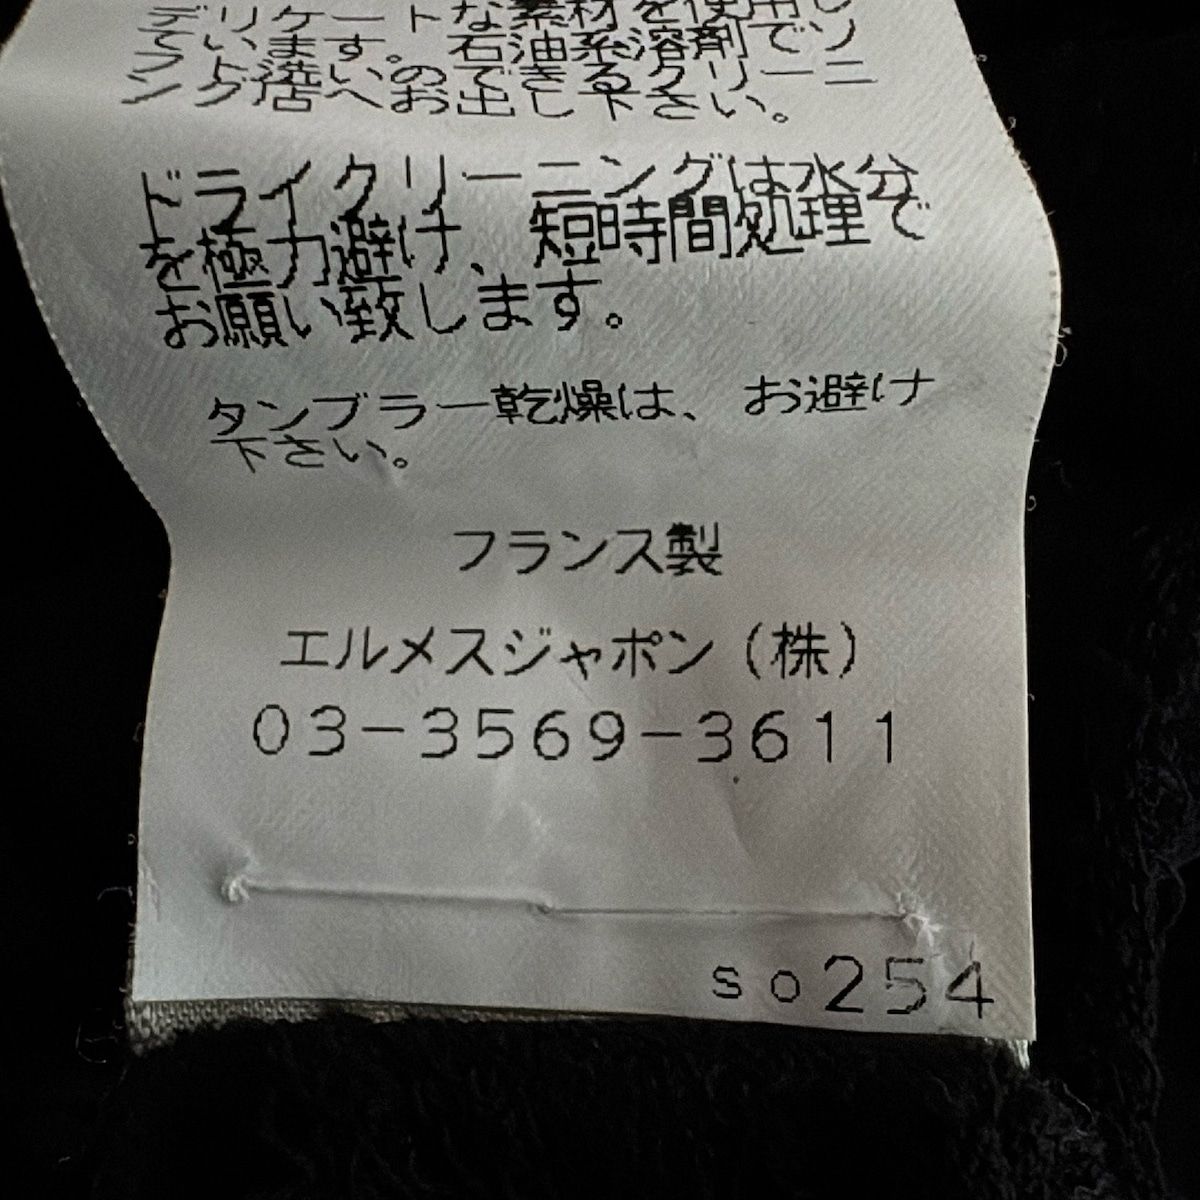 デリケートな素材を使用し
ています。石油系溶剤でソ
フト洗いのできるクリーニ
ング店へお出し下さい。
ドライクリーニングは水分
を極力避け、短時間処理で
お願い致します。
タンブラー乾燥は、お避け
下さい。
フランス製
エルメスジャポン（株）
03-3569-3611
so254